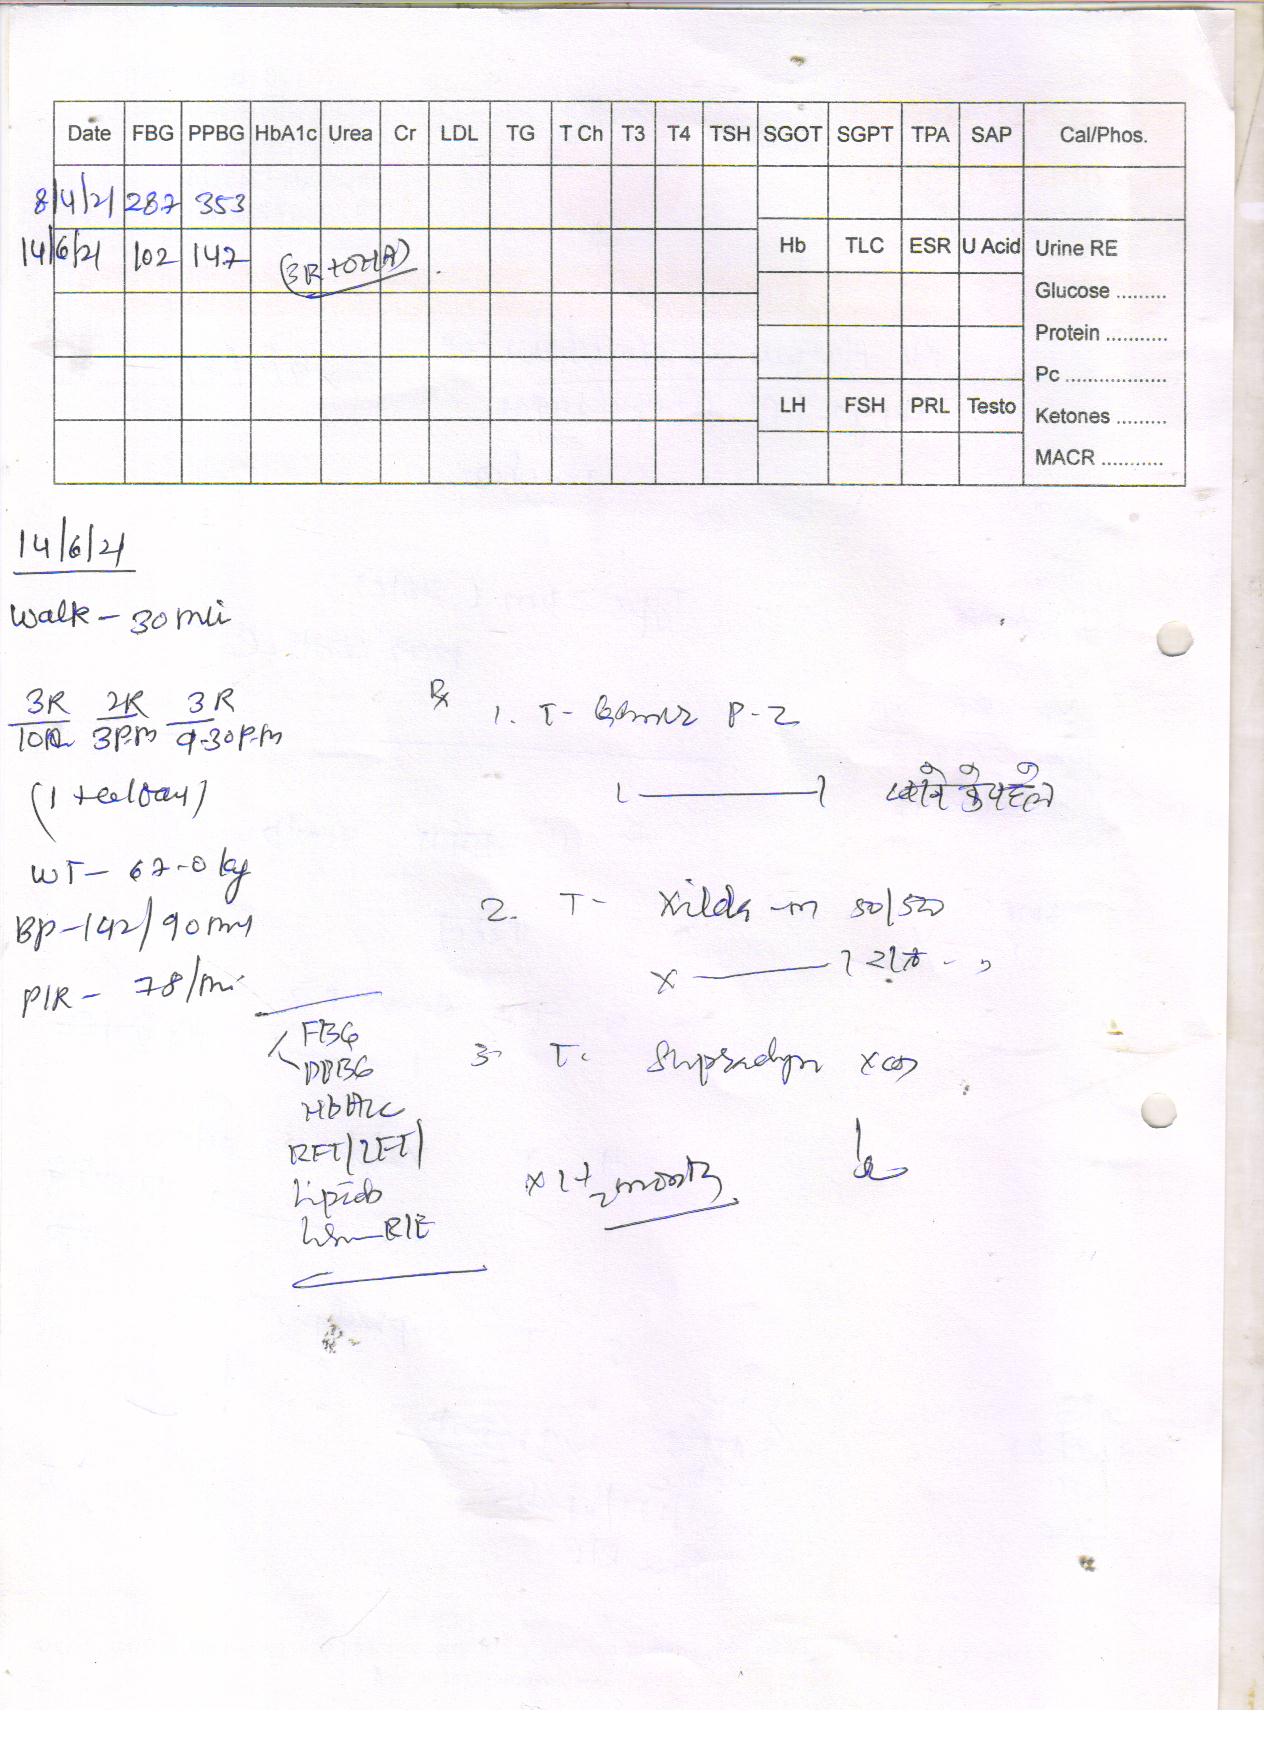 Date FBG PPBG HbA1c Urea Cr LDL TG T Ch T3 T4 TSH SGOT SGPT TPA SAP Cal/Phos.
8/4/21 287 353
14/6/21 102 147 (3R+OHA)
Hb TLC ESR U Acid Urine RE
Glucose .........
Protein ...........
Pc ..................
LH FSH PRL Testo
Ketones .........
MACR ...........
14/6/21
Walk - 30 min
3R 2R 3R
10 3P.m 9.30P.m
(1
WT - 67.0 kg
BP - 142/90
P/R - 78/mi
FBG
PPBG
HbA1c
RFT/LFT/
Lipids
R/E
Rx
1. T- P-2
1 — 1 खाने के पहले
2. T- Xilda-m 50/500
x — 1
3. T. Supradyn x OD